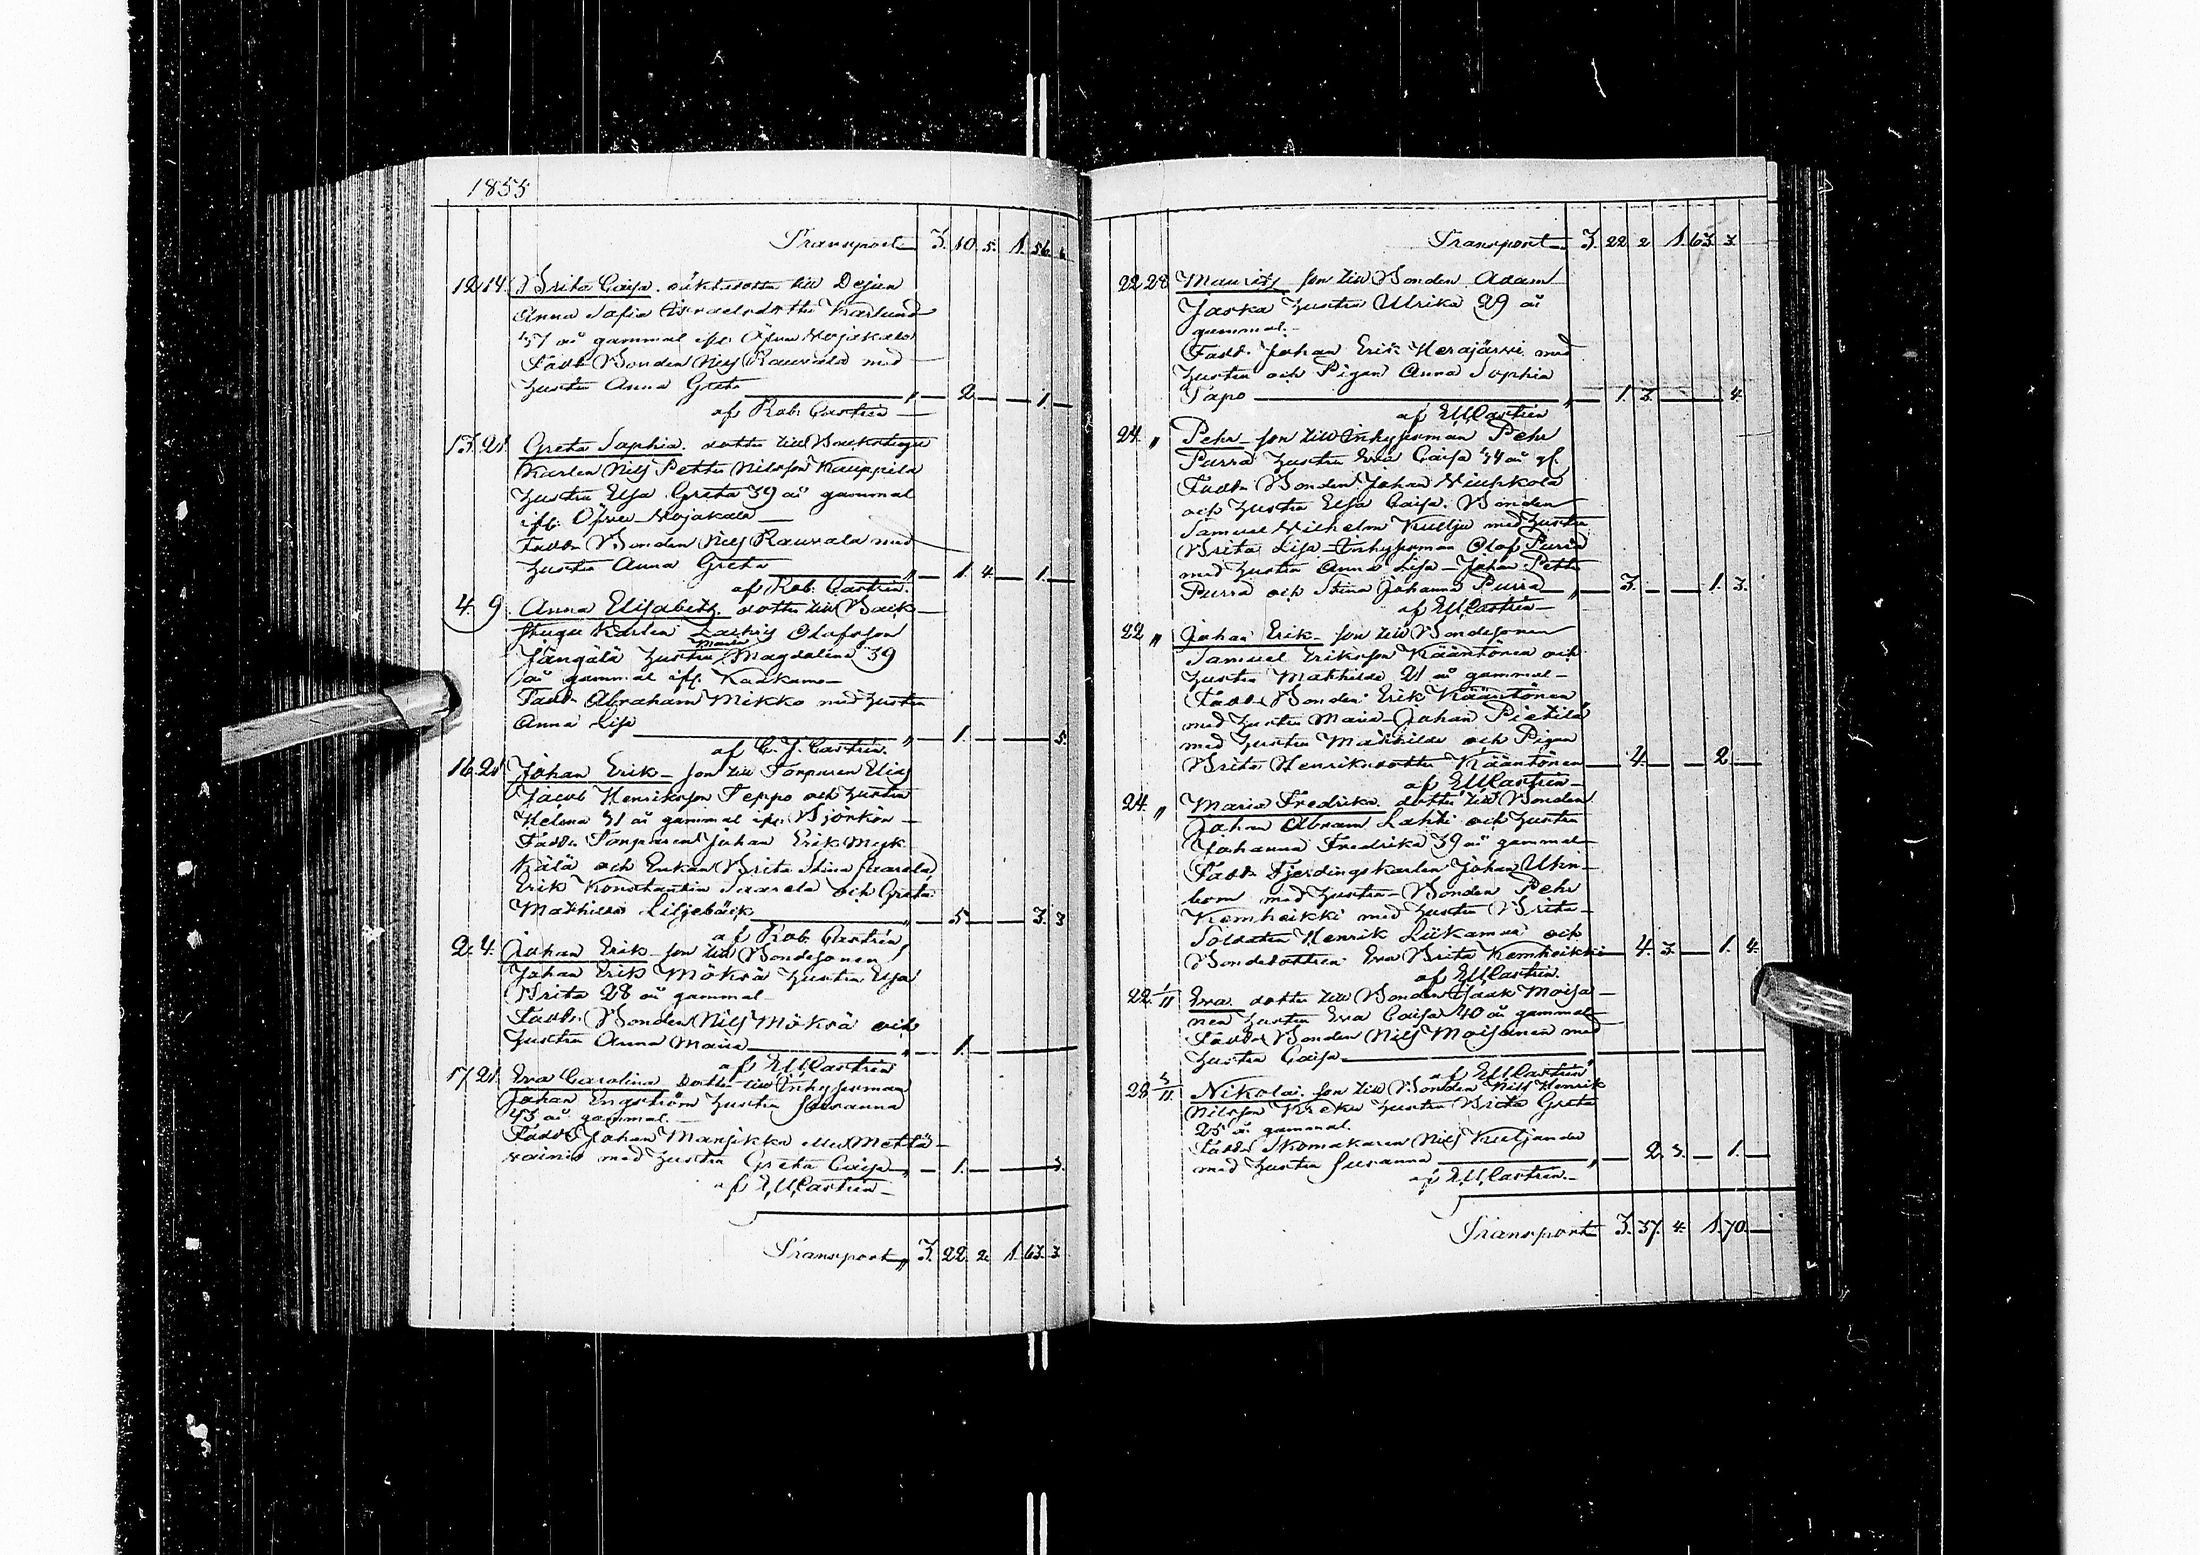 1855
Transport 3. 10. 5. 1. 56.
12. 14. Brita Caisa. oäkta dotter till Dejan
Anna Sofia Israelsdotter Karlund
37 år gammal ifr. Öfver
Fadd. Bonden Nils Rauvala med
hustru Anna Greta " — 2. — — 1. —
af Rob. Castrén
13. 21. Greta Sophia. dotter till Backstugu
Karlen Nils Petter Nilsson Kauppila
hustru Elsa Greta 39 år gammal
ifr. Öfver
Fadd. Bonden Nils Rauvala med
hustru Anna Greta " — 1. 4. — 1. —
af Rob. Castrén.
4. 9. Anna Elisabeth. dotter till Back-
stugu Karlen Olofsson
Maria
hustru Magdalena 39
år gammal ifr. Kaakamo —
Fadd. Abraham Mikko med hustru
Anna Lisa " — 1. — — — 5.
af C. J. Castrén.
16. 21. Johan Erik — son till Torparen Elias
Jacob Henriksson Teppo och hustru
Helena 31 år gammal ifr. Björkön —
Fadd. Torparen Johan Erik
och Enkan Brita Stina Saarela
Erik Konstantin Saarela och Greta
Mathilda Liljebäck " — 5. — — 3. 3
af Rob. Castrén
2. 4. Johan Erik — son till Bondesonen
Johan Erik Mökrä hustru Elsa
Brita 28 år gammal —
Fadd. Bonden Nils Mökrä och
hustru Anna Maria " — 1. —
af E U Castrén
17. 21. Eva Carolina dotter till Inhysesman
Johan Engström hustru Susanna
43 år gammal. —
Fadd. Johan Mansikka
med hustru Greta Caisa " — 1. — — — 3.
af E U Castrén —
Transport " 3. 22. 2. 1. 63. 3.
Transport 3. 22. 2 1. 63. 3.
22. 28 Mauritz son till Bonden Adam
Jaska hustru Ulrika 29 år
gammal. —
Fadd. Johan Erik Herajärvi med
hustru och Pigan Anna Sophia
Tapo " — 1. 3. — — 4.
af E U Castrén
24. " Pehr — son till Inhysesman Pehr
Purra hustru Eva Caisa 34 år gl.
Fadd. Bonden Johan Niupkola
och hustru Elsa Caisa. Bonden
Samuel Vilhelm med hustru
Brita Lisa — Inhysesman Olof Purra
med hustru Anna Lisa — Johan Petter
Purra och Stina Johanna Purra — " — 3. — — 1. 3.
af E U Castrén —
22. " Johan Erik — son till Bondesonen
Samuel Eriksson Kääntönen och
hustru Mathilda 21 år gammal —
Fadd. Bonden Erik Kääntönen
med hustru Maria — Johan Pietilä
med hustru Mathilda och Pigan
Brita Henriksdotter Kääntönen — 4. — — 2. —
af E U Castrén —
24. " Maria Fredrika dotter till Bonden
Johan Abram Lahti och hustru
Johanna Fredrika 39 år gammal —
Fadd. Fjerdingskarlen Johan
med hustru — Bonden Pehr
Kemheikki med hustru Brita —
Soldaten Henrik Liikamaa och
Bondedottren Eva Brita Kemheikki — 4. 3. — 1. 4.
af E U Castrén.
22. 1/11 Eva. dotter till Bonden Isaak Moisa-
nen hustru Eva Caisa 40 år gammal
Fadd. Bonden Nils Moisanen med
hustru Caisa —
af E U Castrén
28 3/11. Nikolai. son till Bonden Nils Henrik
Nilsson hustru Brita Greta
25 år gammal.
Fadd. Skomakaren Nils
med hustru Susanna " — 2. 3. — 1. —
af E U Castrén. —
Transport 3. 37. 4. 1. 70. —